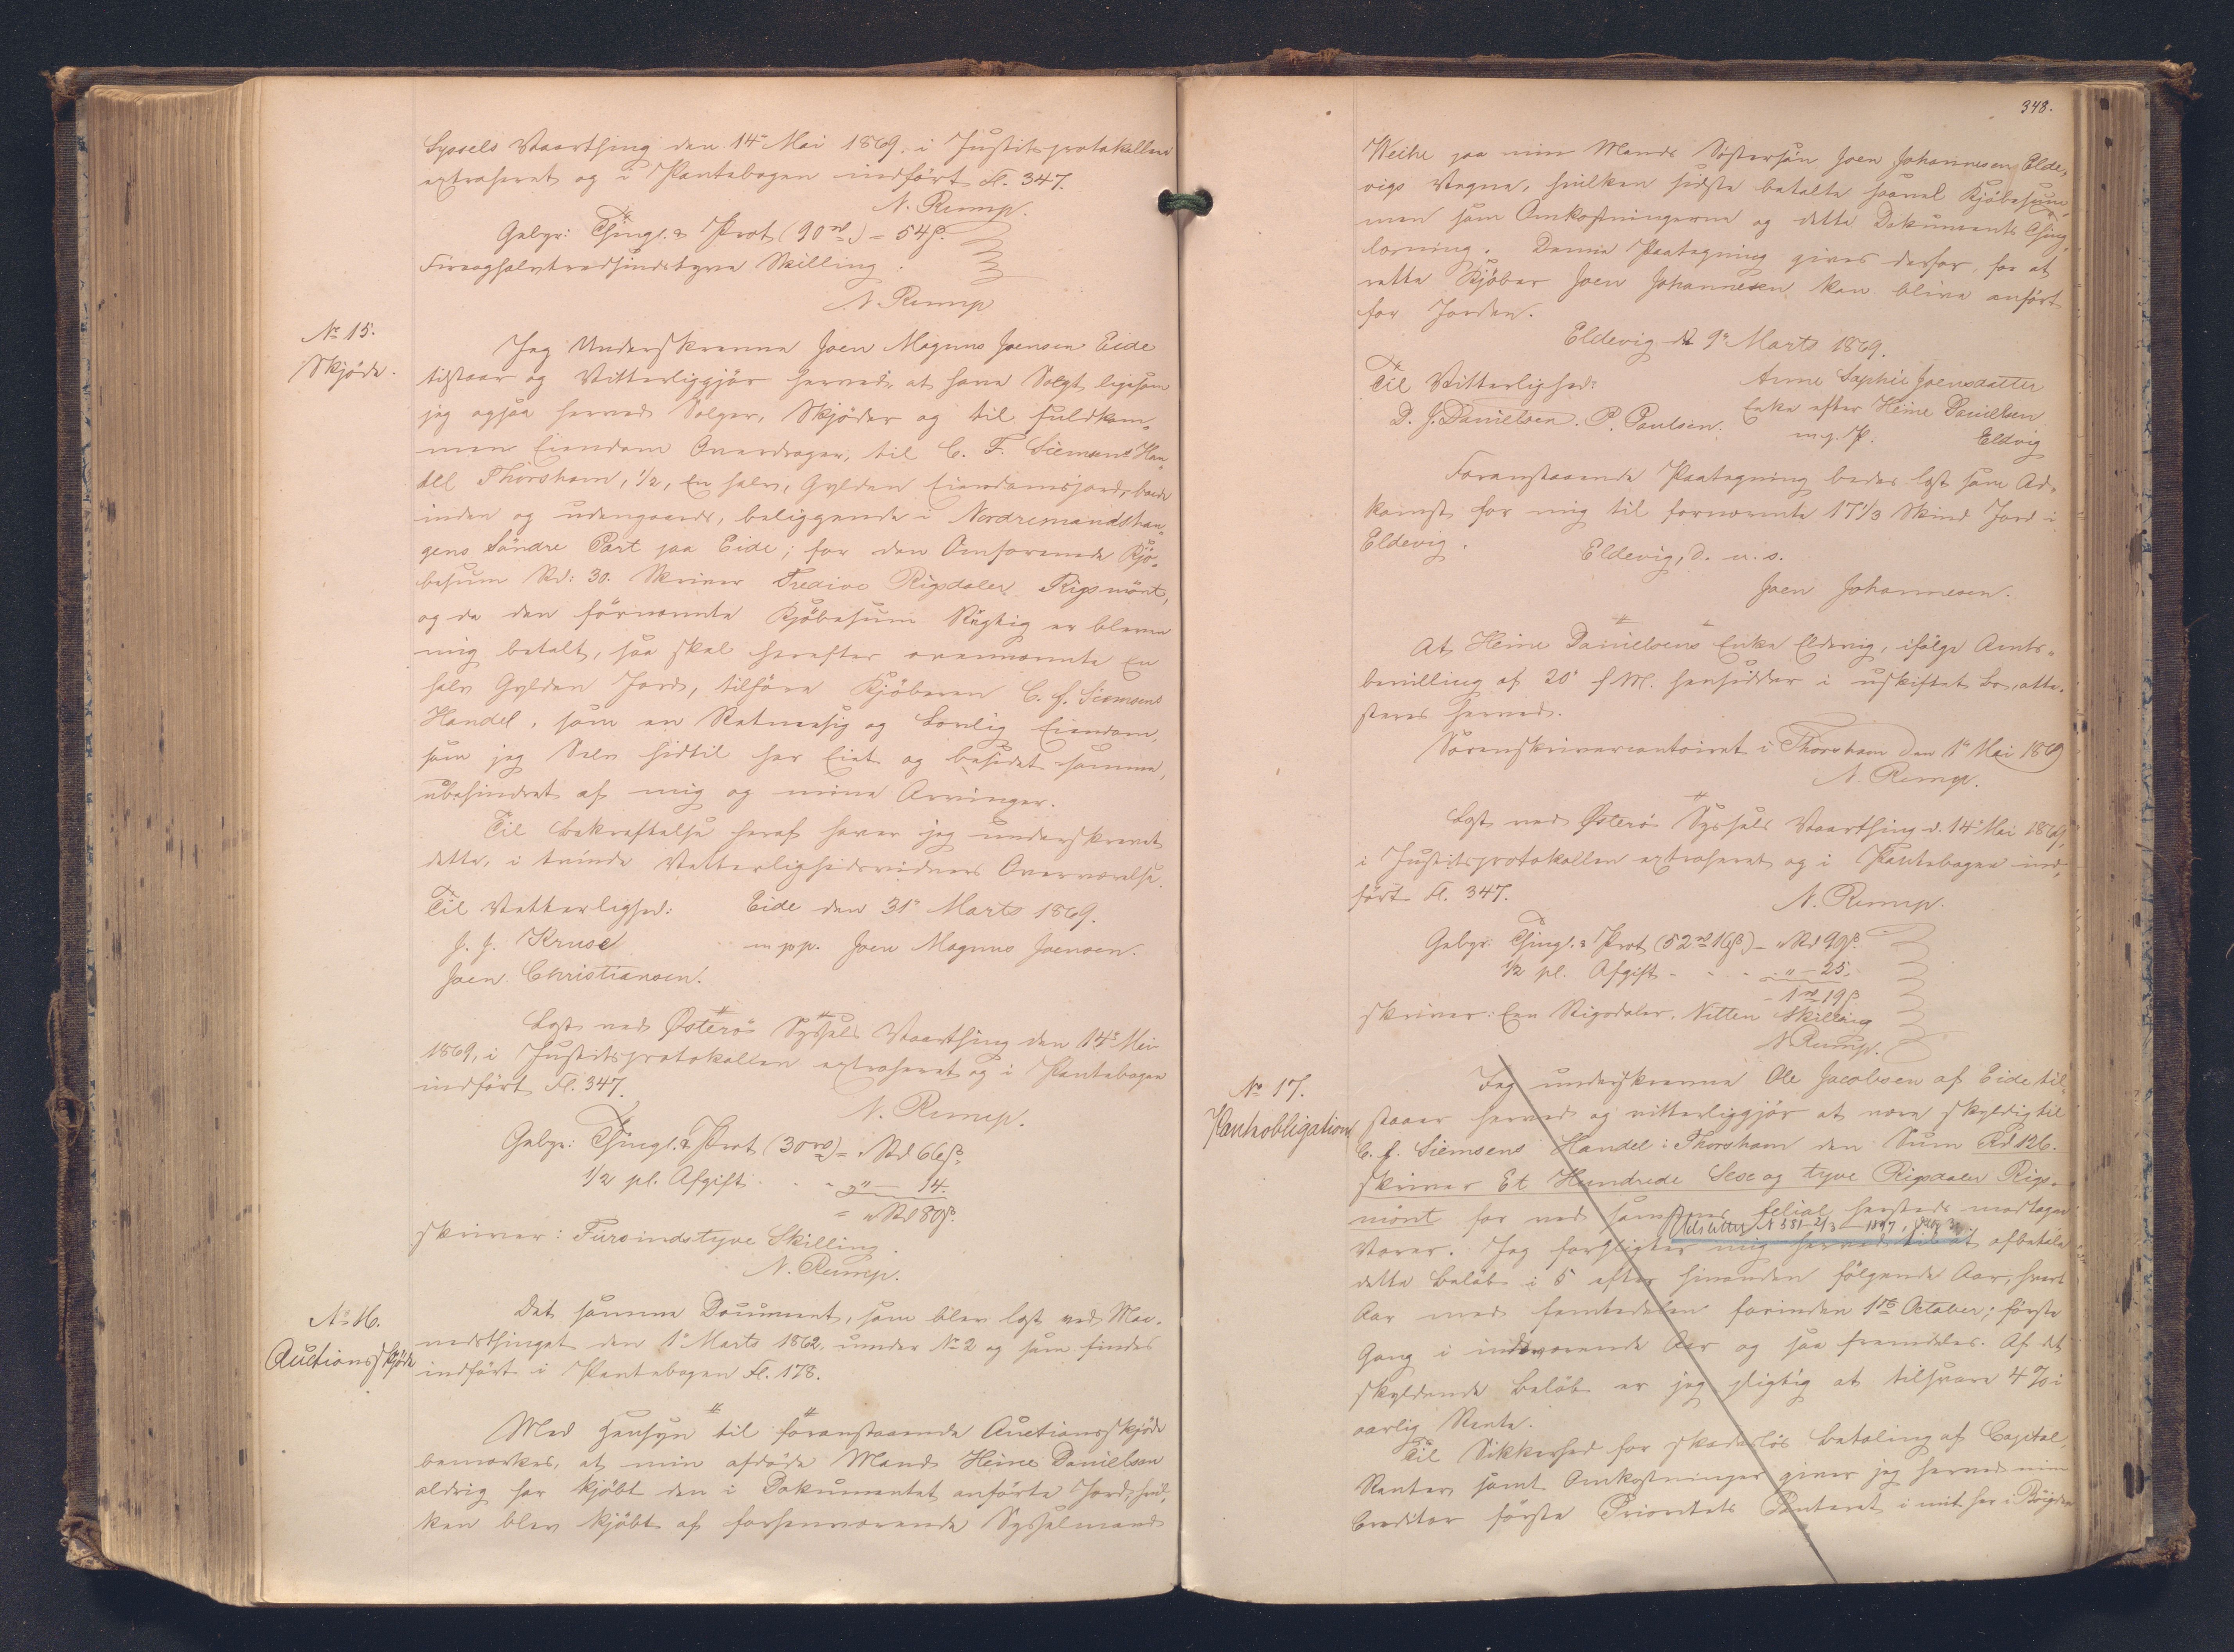 Syssels Vaarthing den 14de Mai 1869, i Justitsprotokollen
extraheret og i Pantebogen indført Fl. 347.
N. Rump.
Gebyr: Thingl. & Prot (90 rd) = 54 ß.
Fireoghalvtredsindstyve Skilling.
N. Rump
No 15.
Skjøde.
Jeg Underskrevne Joen Magnus Joensen Eide
tilstaar og Vitterliggjør herved, at have Solgt, ligesom
jeg ogsaa herved Sælger, Skjøder og til fuldkom-
men Eiendom Overdrager, til C. F. Siemsens Han-
del Thorshavn, 1/2, En halv, Gylden Eiendomsjord, baade
inden og udengaards, beliggende i Nordremandshau-
gens Søndre Part paa Eide; for den Omforenede Kjø-
besum Rd: 30. Skriver Tredive Rigsdaler Rigsmønt,
og da den førnævnte Kjøbesum Rigtig er bleven
mig betalt, saa skal herefter ovennævnte En
halv Gylden Jord, tilhøre Kjøberen C. F. Siemsens
Handel, som en Retmæsig og Lovlig Eiendom,
som jeg Selv hidtil har Eiet og besiddet samme,
ubehindret af mig og mine Arvinger.
Til Bekræftelse heraf haver jeg underskrevet
dette, i tvende Vetterlighedsvidners Overværelse.
Til Vetterlighed: Eide den 31te Marts 1869.
J. J. Kruse m. p. p. Joen Magnus Joensen.
Joen Christiansen.
Læst ved Østerøs Syssels Vaarthing den 14de Mai
1869, i Justitsprotokollen extraheret og i Pantebogen
indført Fl. 347.
N. Rump.
Gebyr: Thingl. & Prot (30 rd) = " Rd 66 ß.
1/2 pC. Afgift . . - " — 14.
= " Rd 80 ß.
skriver: Fiirsindstyve Skilling.
N. Rump.
No 16.
Auctionsskjøde
Det samme Document, som blev læst ved Mar-
nedsthinget den 1ste Marts 1862 under No 2 og som findes
indført i Pantebogen Fl. 178.
Med Hensyn til foranstaaende Auctionsskjøde
bemærkes, at min afdøde Mand Heine Danielsen
aldrig har kjøbt den i Dokumentet anførte Jord, hvil-
ken blev kjøbt af forhenværende Sysselmand
348.
Weihe paa min Mands Søstersøn Joen Johannesen Elde-
vigs Vegne, hvilken sidste betalte saavel Kjøbesum-
men som Omkostningerne og dette Dokuments Thing-
læsning. Denne Paategning gives derfor, for at
rette Kjøber Joen Johannesen kan blive anført
for Jorden.
Eldevig d 9de Marts 1869.
Til Vitterlighed: Anne Sophie Joensdatter
D. J. Danielsen. P. Poulsen. Enke efter Heine Danielsen
m. f. P. Eldvig
Foranstaaende Paategning bedes læst som Ad-
komst for mig til fornævnte 17 1/3 Skind Jord i
Eldevig.
Eldevig, d. u. s.
Joen Johannesen.
At Heine Danielsens Enke Eldevig, ifølge Amts-
bevilling af 20de f. M. hensidder i uskiftet Bo, atte-
steres herved.
Sorenskrivercontoiret i Thorshavn den 1ste Mai 1869
N. Rump.
Læst ved Østerø Syssels Vaarthing d. 14de Mai 1869,
i Justitsprotokollen extraheret og i Pantebogen ind-
ført Fl. 347.
N. Rump.
Gebyr: Thingl. & Prot (52 rd 16 ß) = " Rd 99 ß.
1/2 pC. Afgift - . - . " — 25.
- 1 rd 19 ß
skriver: Een Rigsdaler, Nitten Skilling
N Rump.
No 17.
Panteobligation
Jeg underskrevne Ole Jacobsen af Eide, til-
staaer herved og vitterliggjør at være skyldig til
C. F. Siemsens Handel i Thorshavn den Sum Rd 126.
skriver Et Hundrede Sex og tyve Rigsdaler Rigs-
mønt for ved sammes Filial hersteds modtagne
Udslettet 1897,
Varer. Jeg forpligter mig herved til at afbetale
dette Beløb i 5 efter hinanden følgende Aar, hvert
Aar med femtedelen forinden 1ste October; første
Gang i indeværende Aar og saa fremdeles. Af det
skyldende Beløb er jeg pligtig at tilsvare 4 % i
aarlig Rente.
Til Sikkerhed for skadesløs Betaling af Capital,
Renter samt Omkostninger giver jeg herved min
Creditor første Prioritets Panteret i mit her i Bøigden